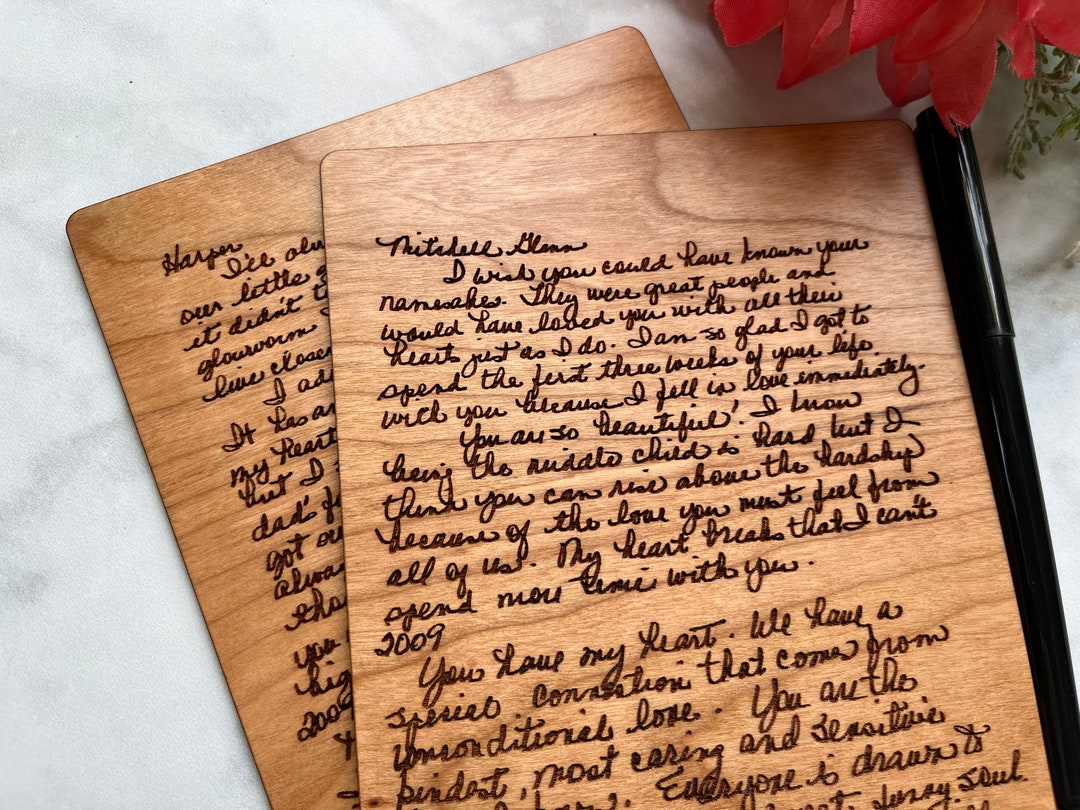 Harper
I'll alw
our little g
it didn't t
glowworm
live close
I ad
It has a
my heart
but I
dad's f
got ou
alwa
tho
you
big
2009
Mitchell Glenn
I wish you could have known your
namesakes. They were great people and
would have loved you with all their
heart just as I do. I am so glad I got to
spend the first three weeks of your life
with you because I fell in love immediately.
You are so beautiful! I know
being the middle child is hard but I
think you can rise above the hardship
because of the love you must feel from
all of us. My heart breaks that I can't
spend more time with you.
2009
You have my heart. We have a
special connection that comes from
unconditional love. You are the
kindest, most caring and sensitive
Everyone is drawn to
soul.